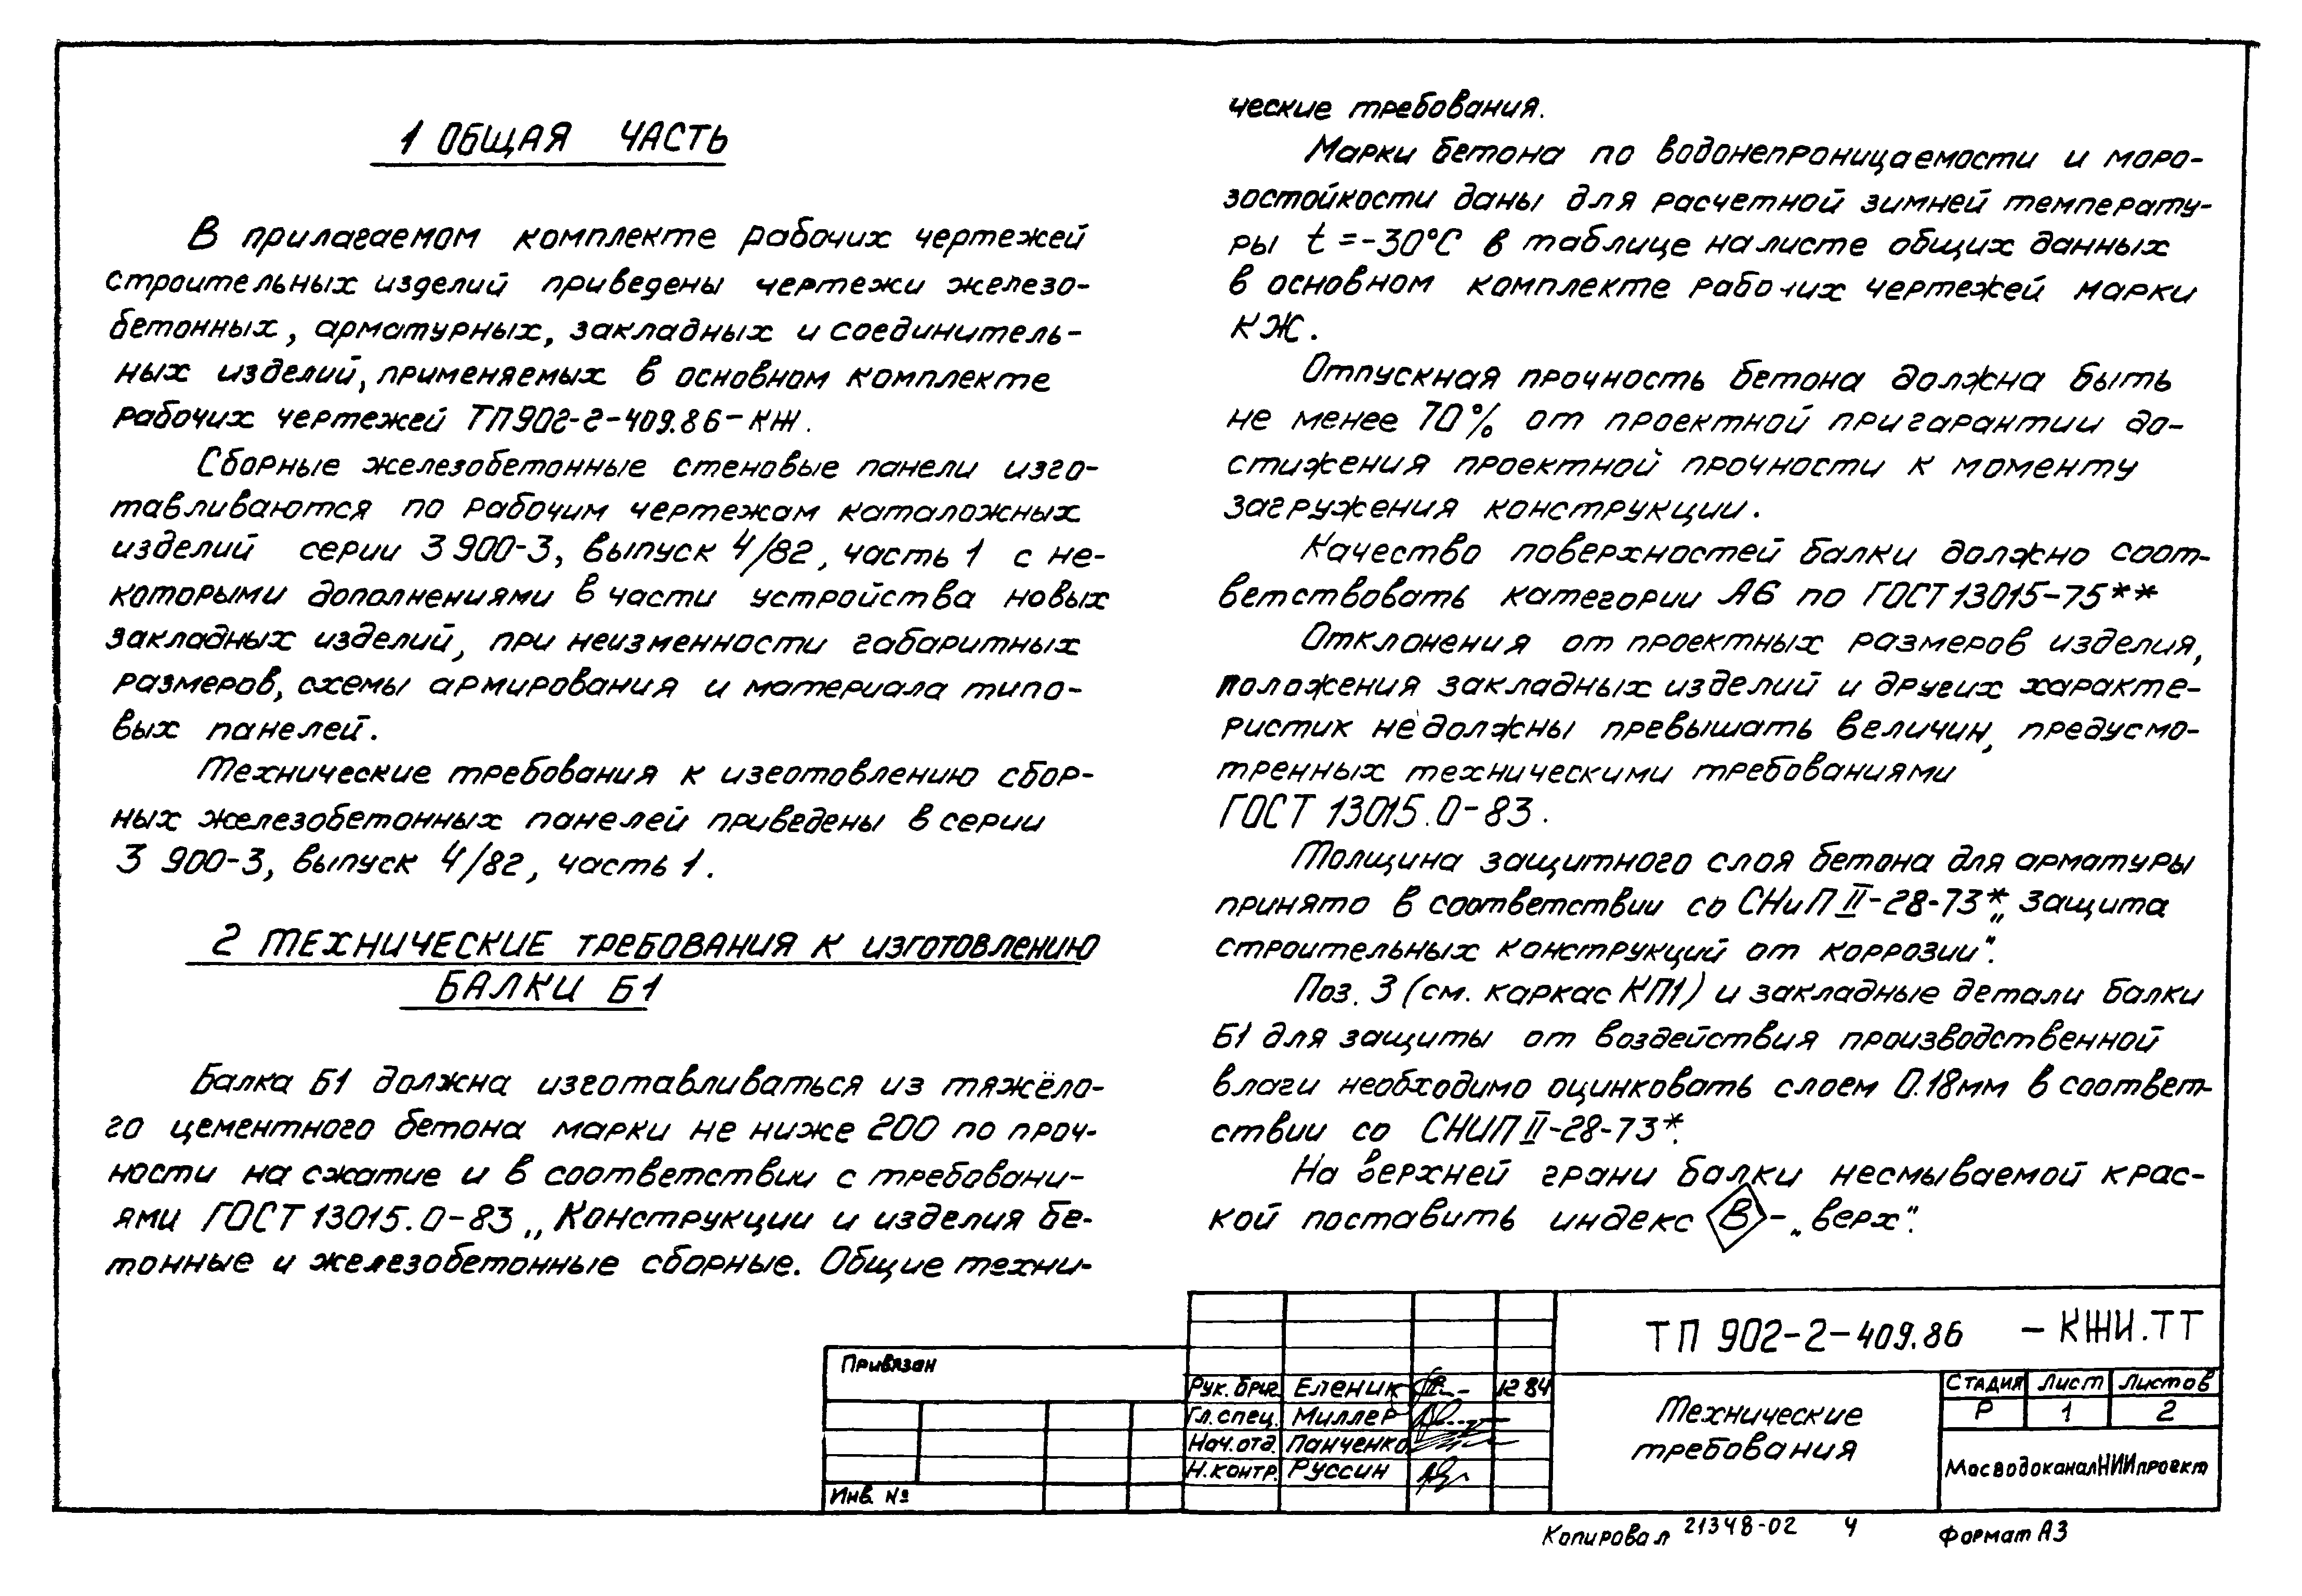 1 ОБЩАЯ ЧАСТЬ
В прилагаемом комплекте рабочих чертежей
строительных изделий приведены чертежи железо-
бетонных, арматурных, закладных и соединитель-
ных изделий, применяемых в основном комплекте
рабочих чертежей ТП902-2-409.86-КЖ.
Сборные железобетонные стеновые панели изго-
тавливаются по рабочим чертежам каталожных
изделий серии 3 900-3, выпуск 4/82, часть 1 с не-
которыми дополнениями в части устройства новых
закладных изделий, при неизменности габаритных
размеров, схемы армирования и материала типо-
вых панелей.
Технические требования к изготовлению сбор-
ных железобетонных панелей приведены в серии
3 900-3, выпуск 4/82, часть 1.
2 ТЕХНИЧЕСКИЕ ТРЕБОВАНИЯ К ИЗГОТОВЛЕНИЮ
БАЛКИ Б1
Балка Б1 должна изготавливаться из тяжёло-
го цементного бетона марки не ниже 200 по проч-
ности на сжатие и в соответствии с требовани-
ями ГОСТ 13015.0-83 „Конструкции и изделия бе-
тонные и железобетонные сборные. Общие техни-
ческие требования.
Марки бетона по водонепроницаемости и моро-
зостойкости даны для расчетной зимней температу-
ры t=-30°С в таблице на листе общих данных
в основном комплекте рабочих чертежей марки
КЖ.
Отпускная прочность бетона должна быть
не менее 70% от проектной при гарантии до-
стижения проектной прочности к моменту
загружения конструкции.
Качество поверхностей балки должно соот-
ветствовать категории А6 по ГОСТ 13015-75**
Отклонения от проектных размеров изделия,
положения закладных изделий и других характе-
ристик не должны превышать величин, предусмо-
тренных техническими требованиями
ГОСТ 13015.0-83.
Толщина защитного слоя бетона для арматуры
принято в соответствии со СНиП II-28-73* „Защита
строительных конструкций от коррозии".
Поз. 3 (см. каркас КП1) и закладные детали балки
Б1 для защиты от воздействия производственной
влаги необходимо оцинковать слоем 0.18мм в соответ-
ствии со СНИП II-28-73*.
На верхней грани балки несмываемой крас-
кой поставить индекс В - „верх".
ТП 902-2-409.86 -КЖИ.ТТ
Привязан
Рук. бриг. Еленик 12 84
Гл. спец. Миллер
Нач. отд. Панченко
Н. контр. Руссин
Инв. №
Технические
требования
Стадия Лист Листов
Р 1 2
МосводоканалНИИпроект
Копировал 21348-02 4 Формат А3